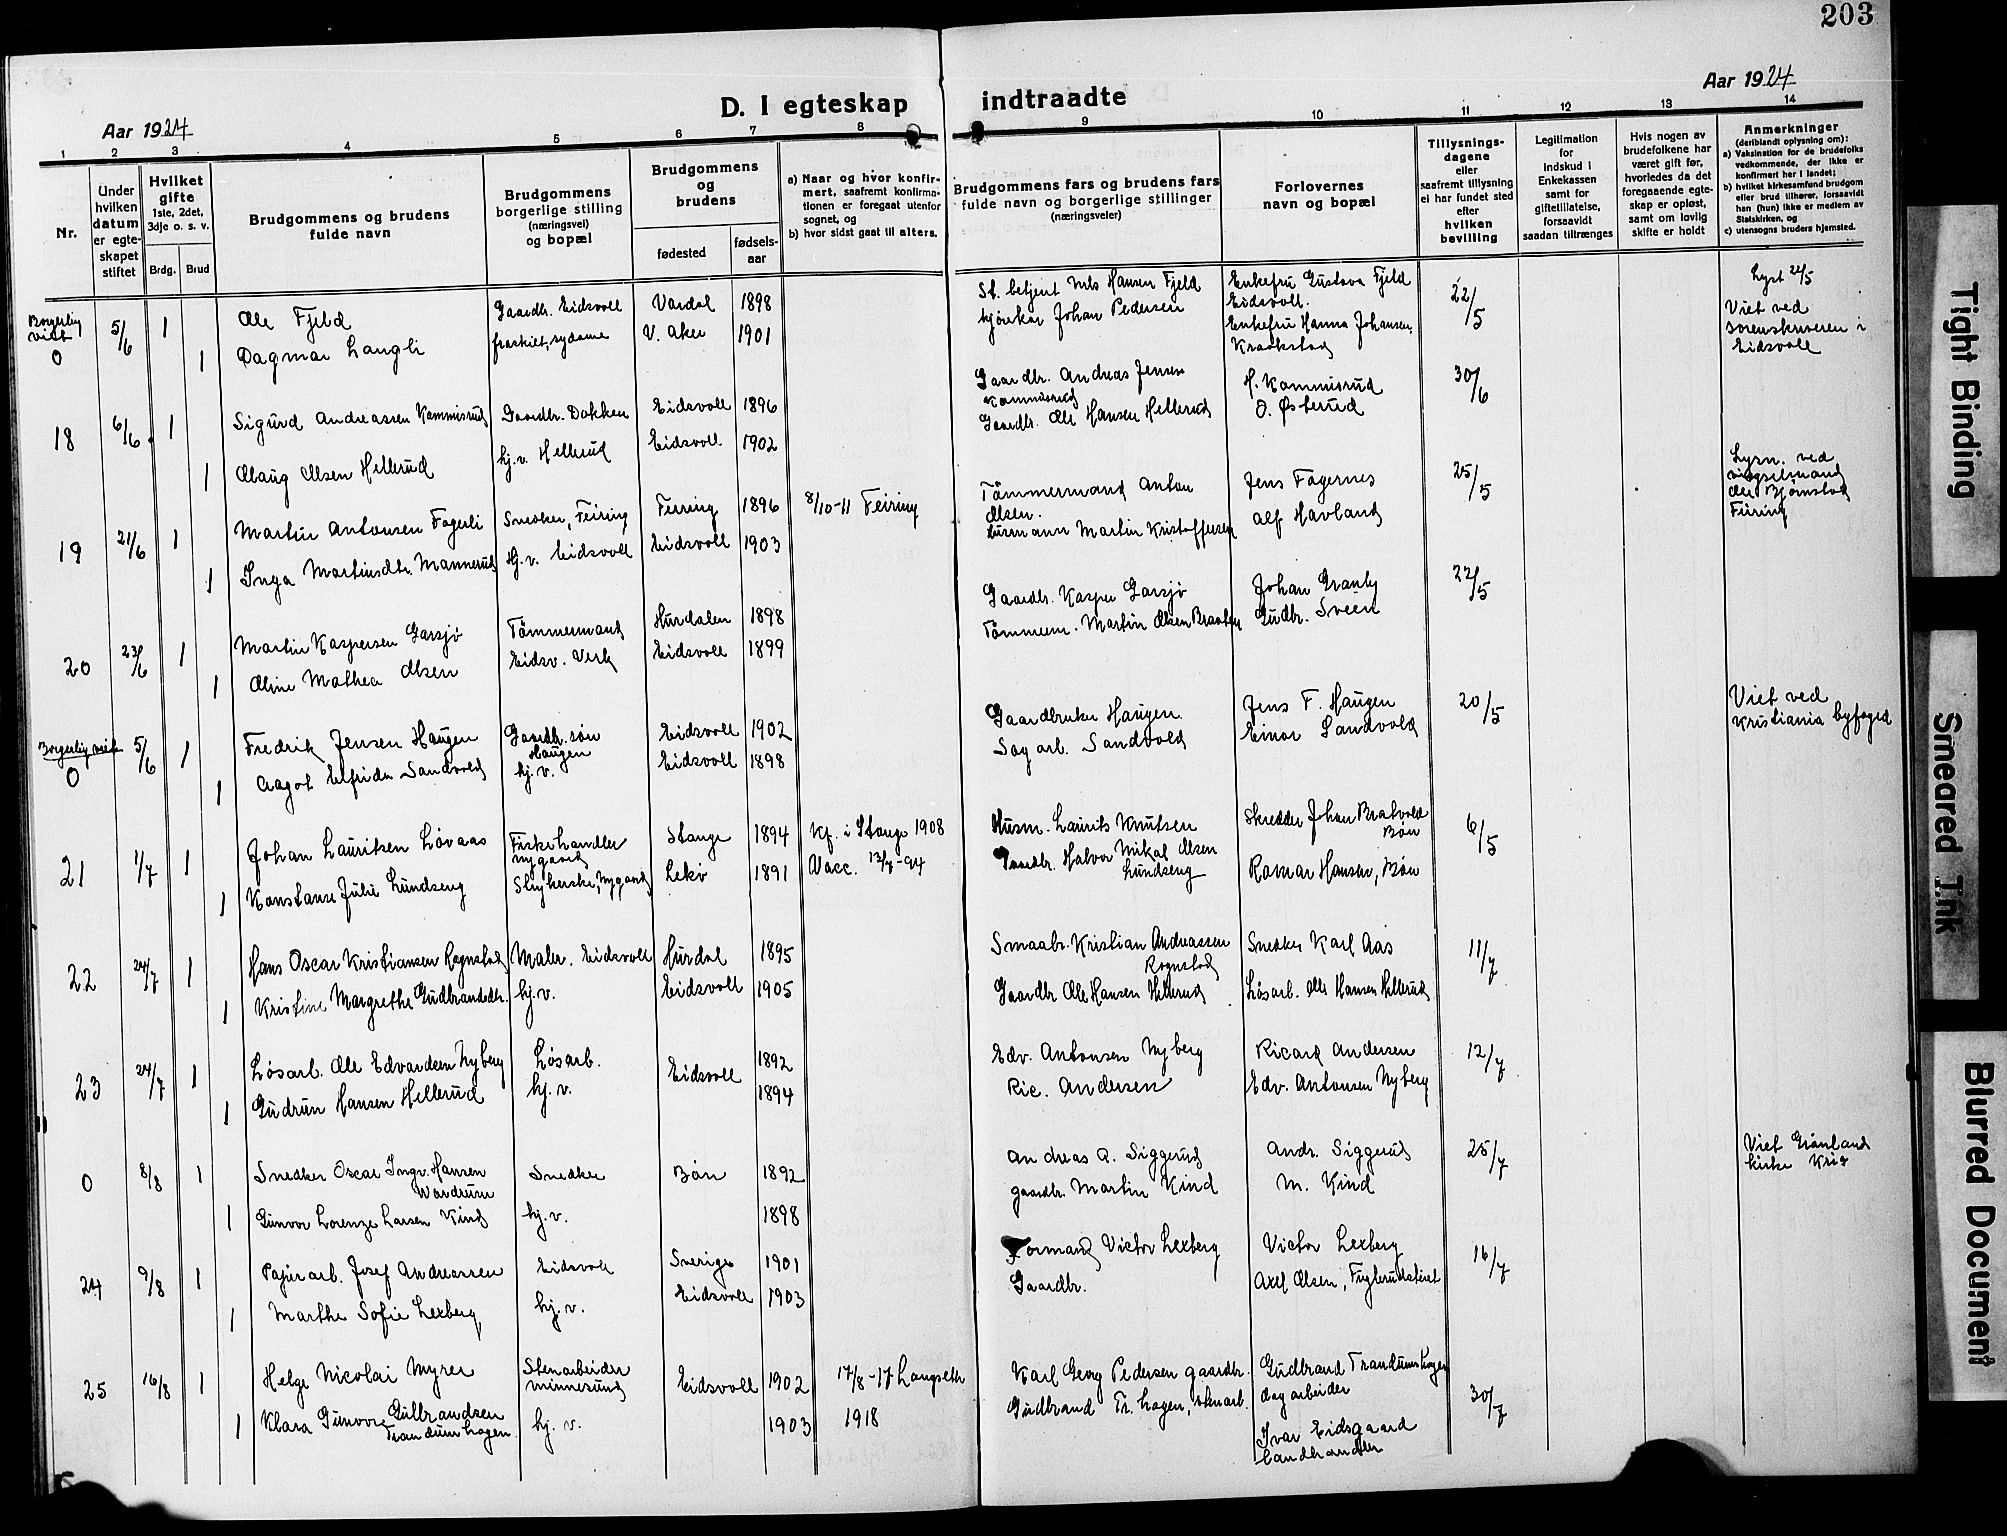 203
D. I egteskap indtraadte
Aar 1924
Aar 1924
1 2 3 4 5 6 7 8 9 10 11 12 13 14
Nr.
Under hvilken datum er egteskapet stiftet
Hvilket gifte 1ste, 2det, 3dje o. s. v.
Brdg. Brud
Brudgommens og brudens fulde navn
Brudgommens borgerlige stilling (næringsvei) og bopæl
Brudgommens og brudens
fødested
fødsels-aar
a) Naar og hvor konfirmert, saafremt konfirmationen er foregaat utenfor sognet, og
b) hvor sidst gaat til alters.
Brudgommens fars og brudens fars fulde navn og borgerlige stillinger (næringsveier)
Forlovernes navn og bopæl
Tillysningsdagene eller saafremt tillysning ei har fundet sted efter hvilken bevilling
Legitimation for indskud i Enkekassen samt for giftetillatelse, forsaavidt saadan tiltrænges
Hvis nogen av brudefolkene har været gift før, hvorledes da det foregaaende egteskap er opløst, samt om lovlig skifte er holdt
Anmerkninger (deriblandt oplysning om):
a) Vaksination for de brudefolks vedkommende, der ikke er konfirmert her i landet;
b) hvilket kirkesamfund brudgom eller brud tilhører, forsaavidt han (hun) ikke er medlem av Statskirken, og
c) utensogns bruders hjemsted.
Borgerlig viet
0 5/6 1 Ole Fjeld Gaardbr. Eidsvoll Vardal 1898 St. betjent Nils Hansen Fjeld Enkefru Gustava Fjeld Eidsvoll. 22/5 Lyst 22/5
1 Dagmar Langli fraskilt, sydame V. Aker 1901 kjørekar Johan Pedersen Enkefru Hanna Johansen, Kraakstad Viet ved sorenskriveren i Eidsvoll
18 6/6 1 Sigurd Andreassen Kommisrud Gaardbr. Dokken Eidsvoll 1896 Gaardbr. Andreas Jensen Kommisrud H. Kommisrud 30/6
1 Olaug Olsen Hellerud hj. v. Hellerud Eidsvoll 1902 Gaardbr. Ole Hansen Hellerud O. Østerud
19 21/6 1 Martin Antonsen Fagerli Snedker, Feiring Feiring 1896 8/10-11 Feiring Tømmermand Anton Olsen. Jens Fagernes 25/5 Lysn. ved Ole Bjørnstad Feiring
1 Inga Martinsdtr. Mannerud Hj. v. Eidsvoll Eidsvoll 1903 Martin Kristoffersen Alf Havland
20 23/6 1 Martin Kaspersen Garsjø Tømmermand Hurdalen 1898 Gaardbr. Kasper Garsjø Johan Granby 22/5
1 Oline Mathea Olsen Eidsv. Verk Eidsvoll 1899 Tømmerm. Martin Olsen Braaten Gudbr. Sveen
Borgerlig viet
0 5/6 1 Fredrik Jensen Haugen Gaardbr. søn Haugen Eidsvoll 1902 Gaardbruker Haugen. Jens F. Haugen 20/5 Viet ved Kristiania byfoged
1 Aagot Elfrida Sandvold hj. v. Eidsvoll 1898 Sagarb. Sandvold Einar Sandvold
21 1/7 1 Johan Lauritsen Løvaas Fiskehandler Nygaard Stange 1894 Kf. i Stange 1908 Husm. Laurits Knutsen Skredder Johan Bratvold Bøn 6/5
1 Konstanse Julie Lundseng Sykerske, Nygaard Lekø 1891 Vacc. 13/7-94 Gaardbr. Halvor Mikal Olsen Lundseng Ragnar Hansen, Bøn
22 24/7 1 Hans Oscar Kristiansen Rognstad Maler. Eidsvoll Hurdal 1895 Smaabr. Kristian Andreassen Rognstad Snedker Karl Aas 11/7
1 Kristine Margrethe Gudbrandsdtr. hj. v. Eidsvoll 1905 Gaardbr Ole Hansen Hellerud Løsarb. Ole Hansen Hellerud
23 24/7 1 Løsarb. Ole Edvardsen Nyberg Løsarb. Eidsvoll 1892 Edv. Antonsen Nyberg Ricard Andersen 12/7
1 Gudrun Hansen Hellerud hj. v. 1894 Ric. Andersen Edv. Antonsen Nyberg
0 8/8 1 Snedker Oscar Ingv. Hansen Wardrum Snedker Bøn 1892 Andreas A. Siggerud Andr. Siggerud 25/7 Viet Grønland kirke Kria
1 Gunvor Lorenze Larsen Kind hj. v. 1898 gaardbr. Martin Kind M. Kind
24 9/8 1 Papirarb. Josef Andreassen Eidsvoll Sverige 1901 Formand Victor Lexberg Victor Lexberg 16/7
1 Marthe Sofie Lexberg hj. v. Eidsvoll 1903 Gaardbr. Axel Olsen, Fuglerudsteiet
25 16/8 1 Helge Nicolai Myrer Stenarbeider Minnesund Eidsvoll 1902 17/8-17 Langseth Karl Georg Pedersen gaardbr. Gudbrand Trandumshagen dagarbeider 30/7
1 Klara Gunvor Gulbrandsen Trandumhagen hj. v. 1903 1918 Gudbrand Tr. hagen, stenarb. Ivar Eidsgaard Landhandler
Tight Binding
Smeared Ink
Blurred Document